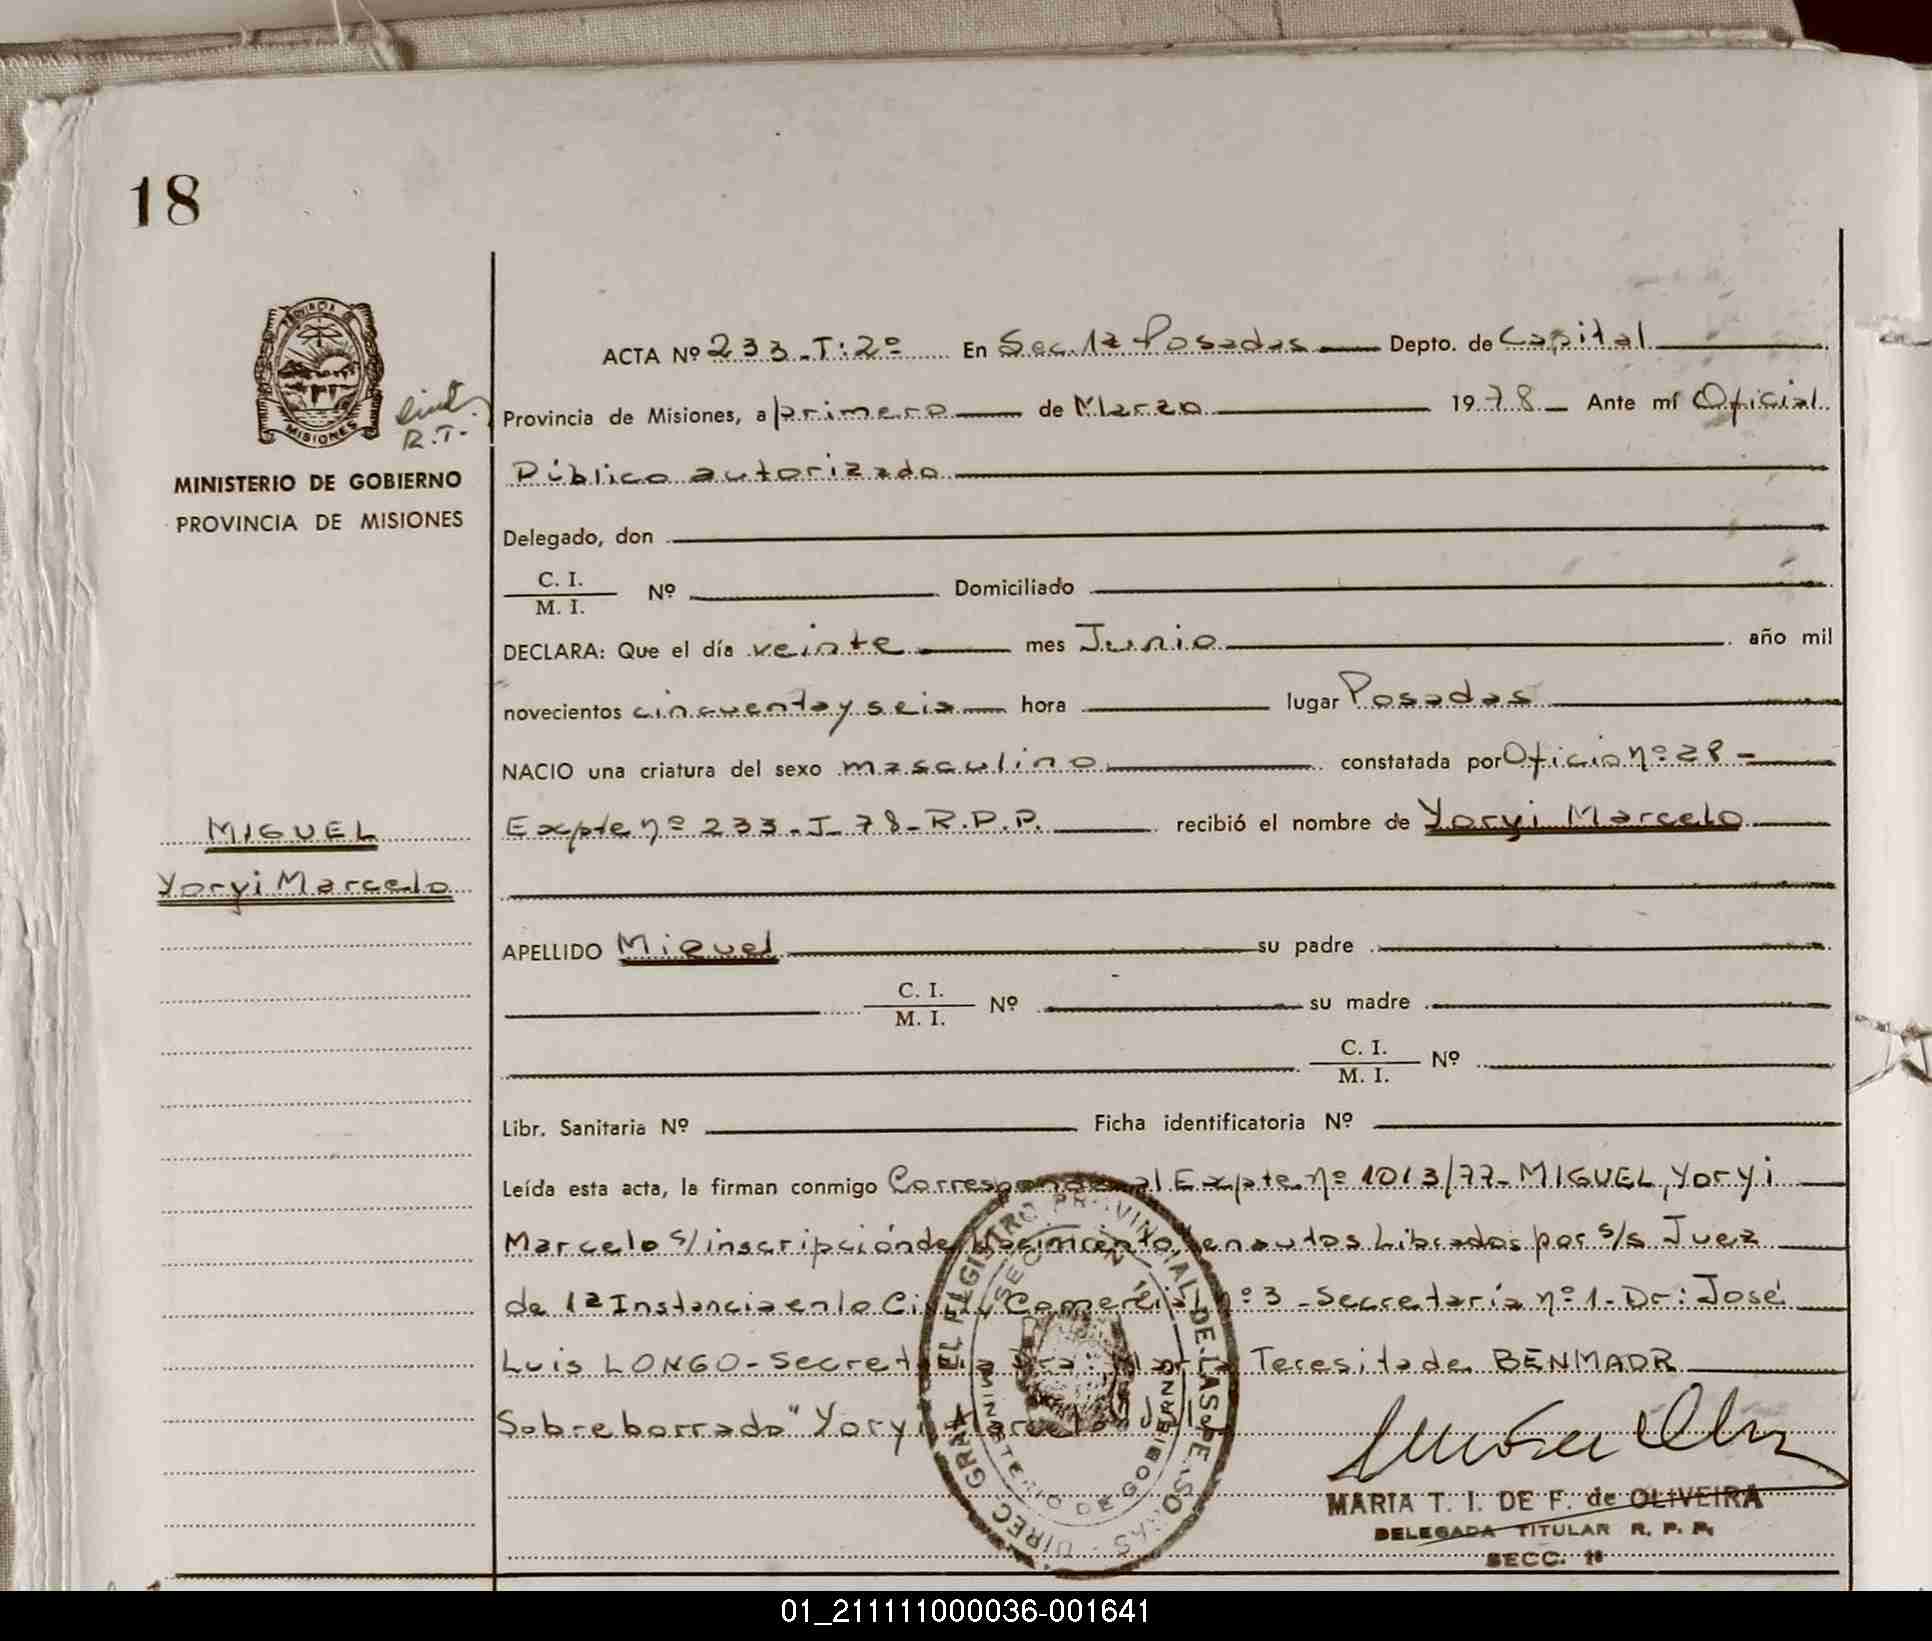 18
PROVINCIA DE
MISIONES
R.T.
MINISTERIO DE GOBIERNO
PROVINCIA DE MISIONES
MIGUEL
Yoryi Marcelo
ACTA Nº 233-T:2º En Sec. 1ª Posadas Depto. de Capital
Provincia de Misiones, a primero de Marzo 1978 Ante mí Oficial
Público autorizado
Delegado, don
C. I.
M. I. Nº Domiciliado
DECLARA: Que el día veinte mes Junio año mil
novecientos cincuenta y seis hora lugar Posadas
NACIO una criatura del sexo masculino constatada por Oficio nº 28-
Expte nº 233-J-78-R.P.P. recibió el nombre de Yoryi Marcelo
APELLIDO Miguel su padre
C. I.
M. I. Nº su madre
C. I.
M. I. Nº
Libr. Sanitaria Nº Ficha identificatoria Nº
Leída esta acta, la firman conmigo Corresponde al Expte nº 1013/77-MIGUEL, Yoryi
Marcelo s/inscripción de nacimiento, en autos Librados por s/s Juez
de 1ª Instancia en lo Civil y Comercial nº 3-Secretaría nº 1-Dr: José
Luis LONGO-Secretaria Dra: María Teresita de BENMAOR
Sobreborrado "Yoryi Marcelo"
DIREC. GRAL. EL REGISTRO PROVINCIAL DE LAS PERSONAS
SECCION 1ª
MINISTERIO DE GOBIERNO
MARIA T. I. DE F. de OLIVEIRA
DELEGADA TITULAR R. P. P.
SECC. 1ª
01_211111000036-001641